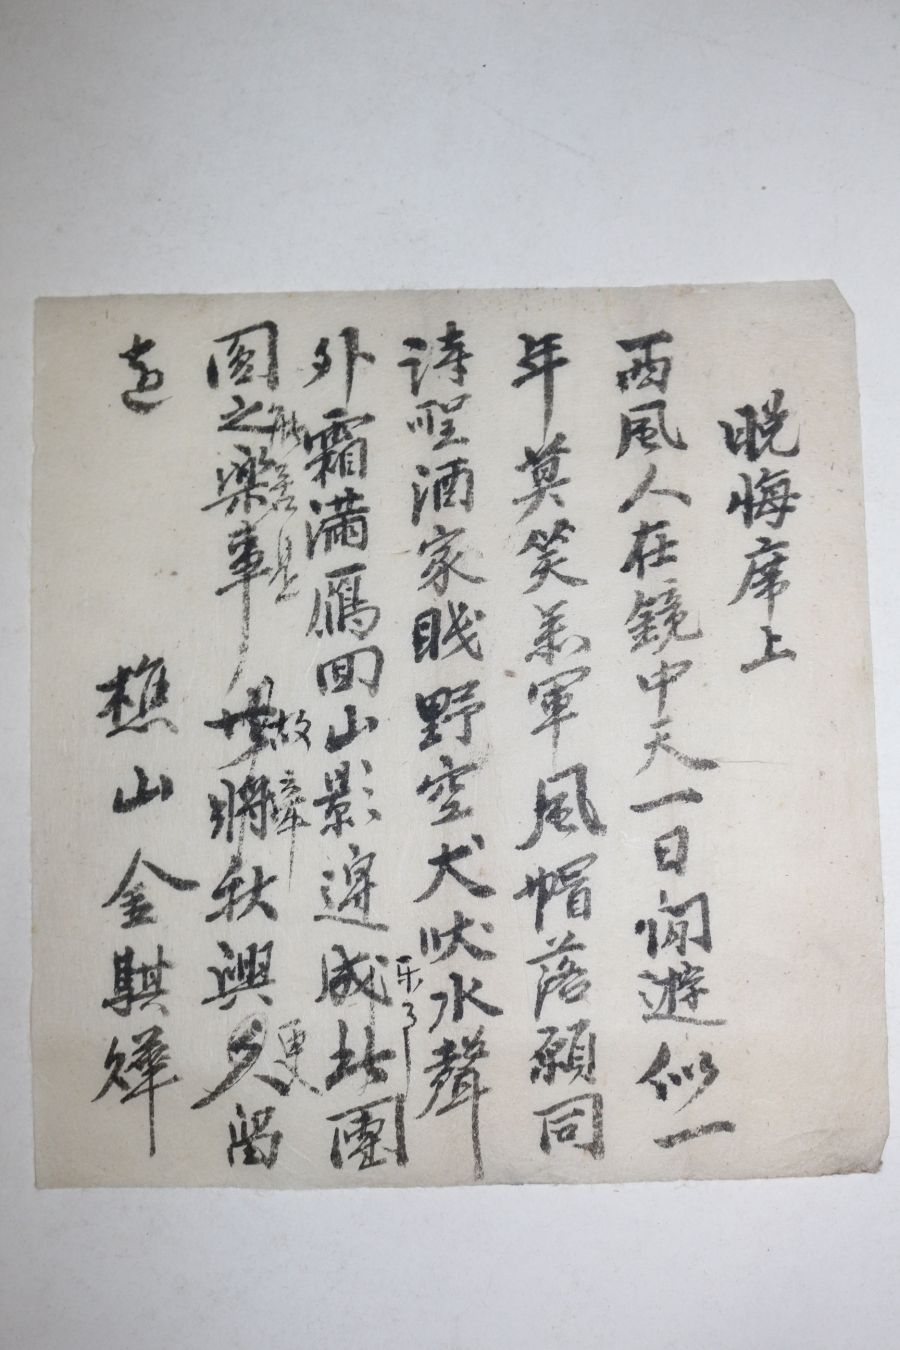 晩悔席上
西風人在鏡中天一日閒遊似一
年莫笑參軍風帽落願同
詩聖酒家眠野空犬吠水聲
外霜滿雁回山影邊成此團
圓之樂事將秋興久留
邊
樵山金騏燁